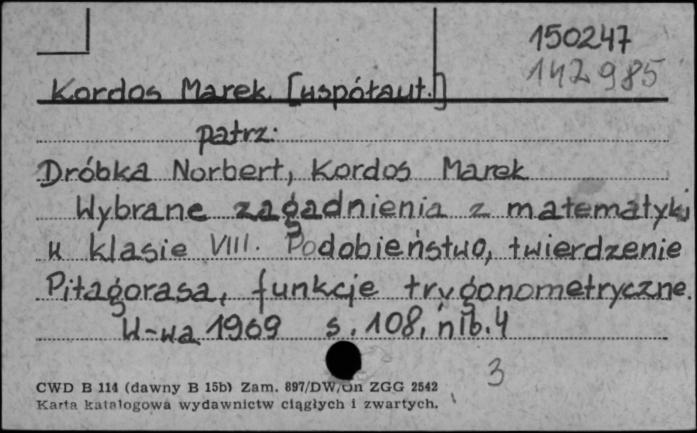 150247
142985
Kordos Marek [współaut.]
patrz:
Dróbka Norbert, Kordos Marek
Wybrane zagadnienia z matematyki
w klasie VIII. Podobieństwo, twierdzenie
Pitagorasa, funkcje trygonometryczne.
W-wa 1969 s. 108, nlb. 4
3
CWD B 114 (dawny B 15b) Zam. 897/DW/Un ZGG 2542
Karta katalogowa wydawnictw ciągłych i zwartych.